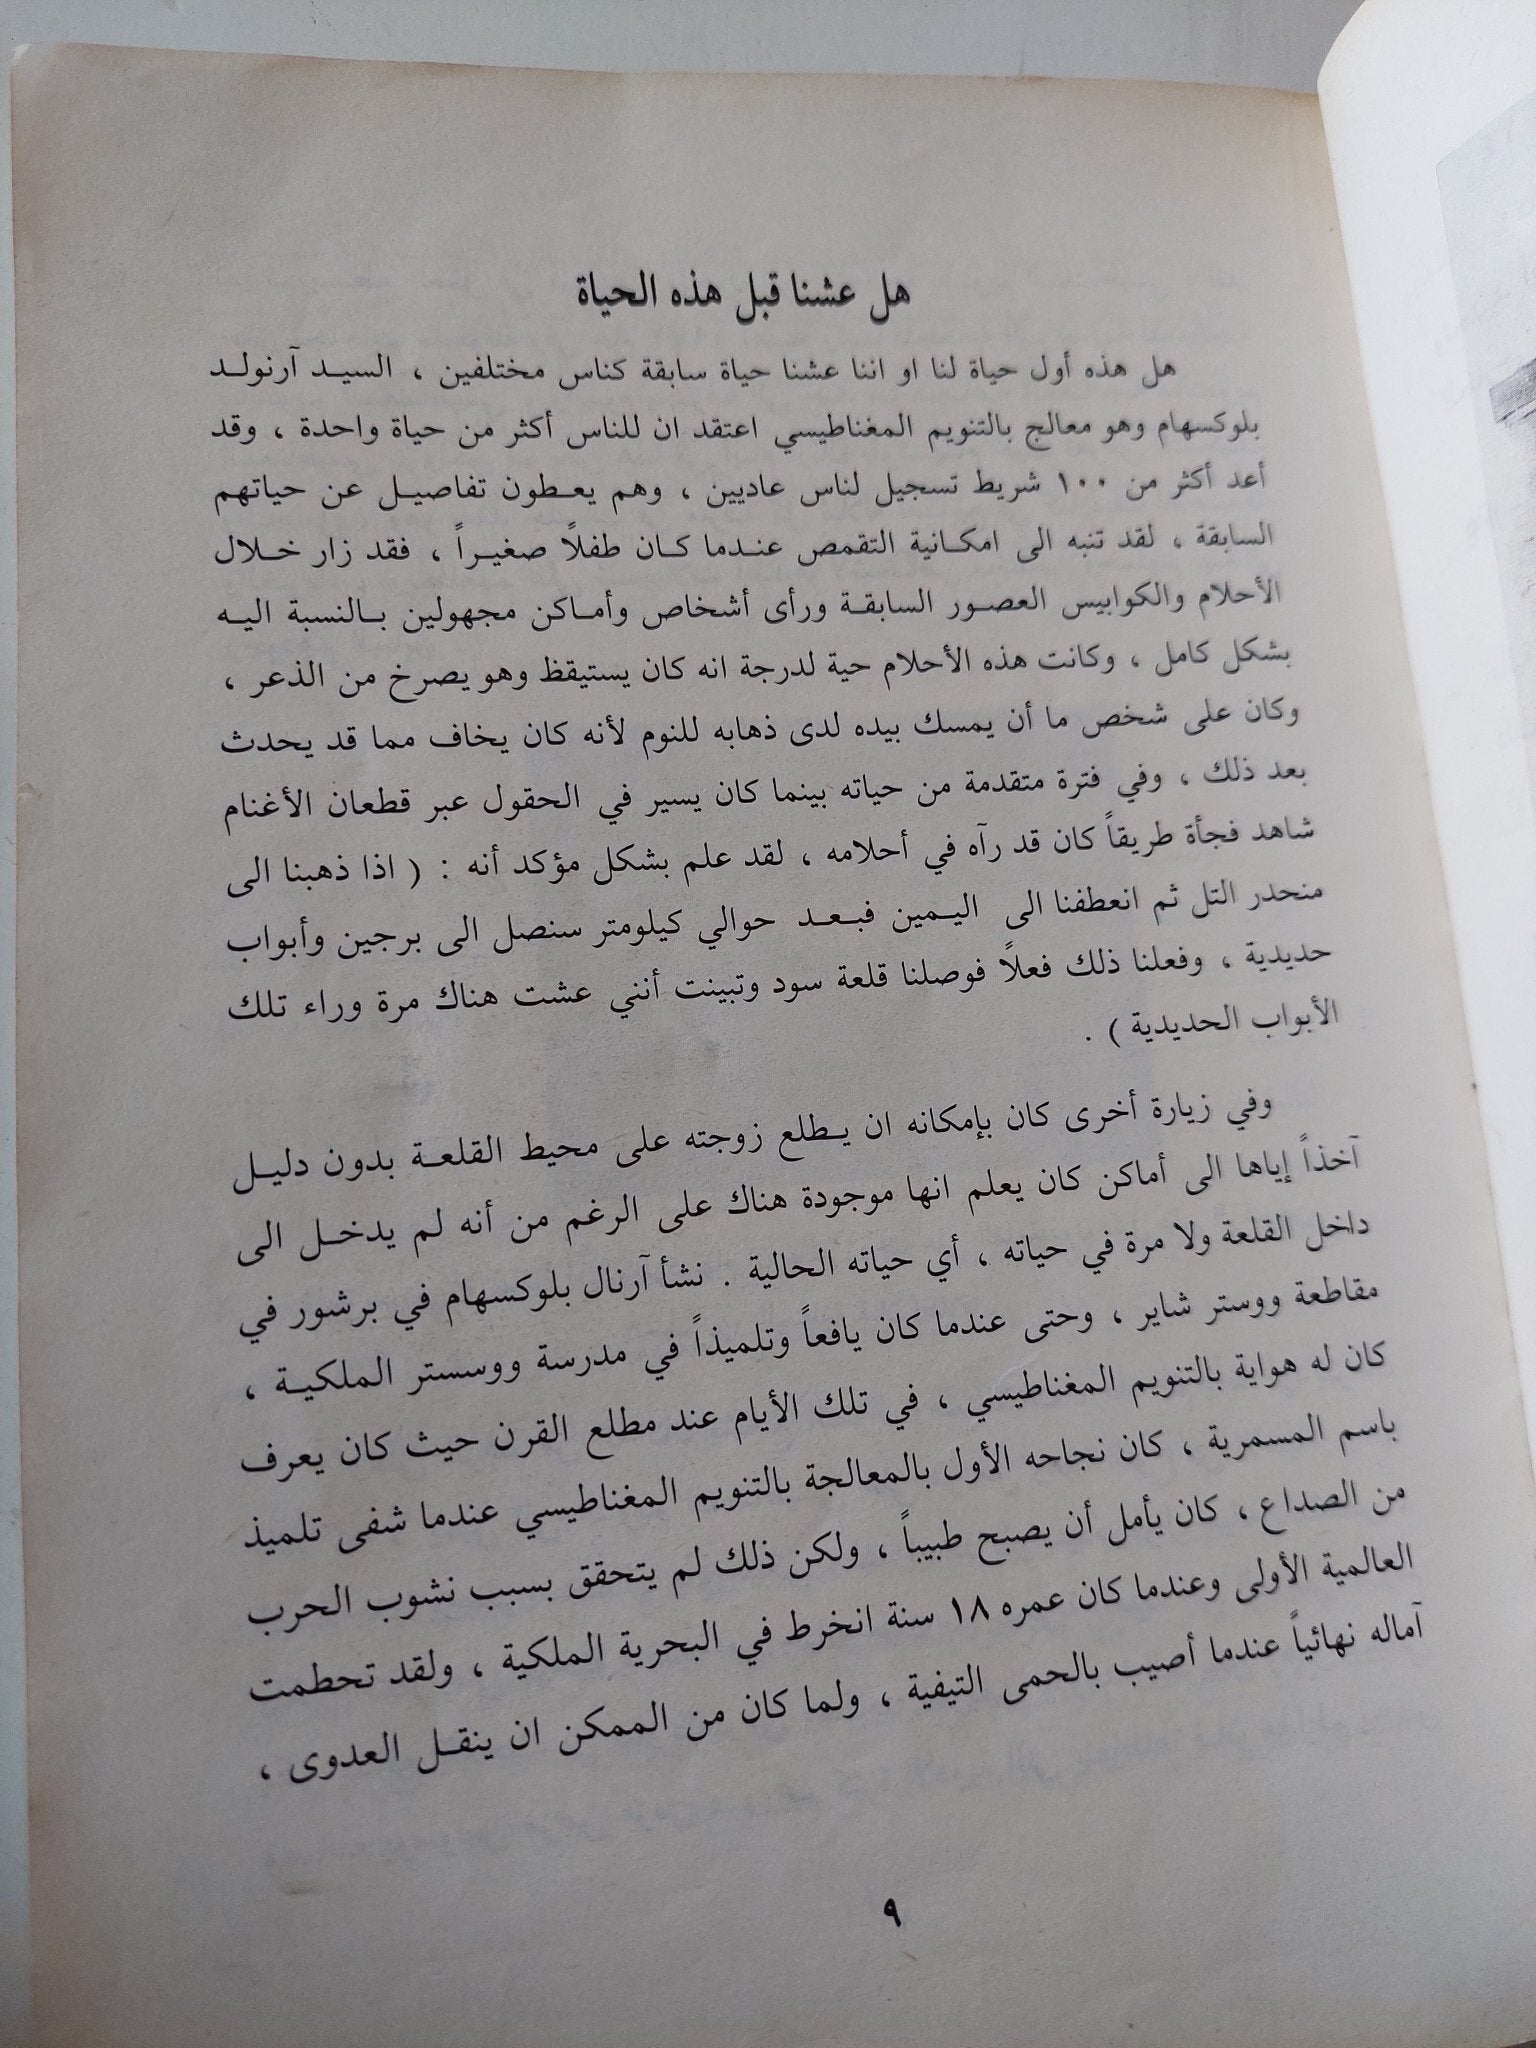 هل عشنا قبل هذه الحياة
هل هذه أول حياة لنا او اننا عشنا حياة سابقة كناس مختلفين ، السيد آرنولد
بلوكسهام وهو معالج بالتنويم المغناطيسي اعتقد ان للناس أكثر من حياة واحدة ، وقد
أعد أكثر من ١٠٠ شريط تسجيل لناس عاديين ، وهم يعطون تفاصيل عن حياتهم
السابقة ، لقد تنبه الى امكانية التقمص عندما كان طفلاً صغيراً ، فقد زار خلال
الأحلام والكوابيس العصور السابقة ورأى أشخاص وأماكن مجهولين بالنسبة اليه
بشكل كامل ، وكانت هذه الأحلام حية لدرجة انه كان يستيقظ وهو يصرخ من الذعر ،
وكان على شخص ما أن يمسك بيده لدى ذهابه للنوم لأنه كان يخاف مما قد يحدث
بعد ذلك ، وفي فترة متقدمة من حياته بينما كان يسير في الحقول عبر قطعان الأغنام
شاهد فجأة طريقاً كان قد رآه في أحلامه ، لقد علم بشكل مؤكد أنه : ( اذا ذهبنا الى
منحدر التل ثم انعطفنا الى اليمين فبعد حوالي كيلومتر سنصل الى برجين وأبواب
حديدية ، وفعلنا ذلك فعلاً فوصلنا قلعة سود وتبينت أنني عشت هناك مرة وراء تلك
الأبواب الحديدية ) .
وفي زيارة أخرى كان بإمكانه ان يطلع زوجته على محيط القلعة بدون دليل
آخذاً إياها الى أماكن كان يعلم انها موجودة هناك على الرغم من أنه لم يدخل الى
داخل القلعة ولا مرة في حياته ، أي حياته الحالية . نشأ آرنال بلوكسهام في برشور في
مقاطعة ووستر شاير ، وحتى عندما كان يافعاً وتلميذاً في مدرسة ووسستر الملكية ،
كان له هواية بالتنويم المغناطيسي ، في تلك الأيام عند مطلع القرن حيث كان يعرف
باسم المسمرية ، كان نجاحه الأول بالمعالجة بالتنويم المغناطيسي عندما شفى تلميذ
من الصداع ، كان يأمل أن يصبح طبيباً ، ولكن ذلك لم يتحقق بسبب نشوب الحرب
العالمية الأولى وعندما كان عمره ١٨ سنة انخرط في البحرية الملكية ، ولقد تحطمت
آماله نهائياً عندما أصيب بالحمى التيفية ، ولما كان من الممكن ان ينقل العدوى ،
٩